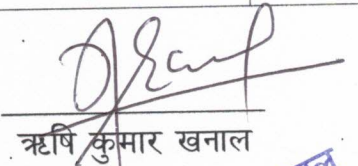 ऋषि कुमार खनाल